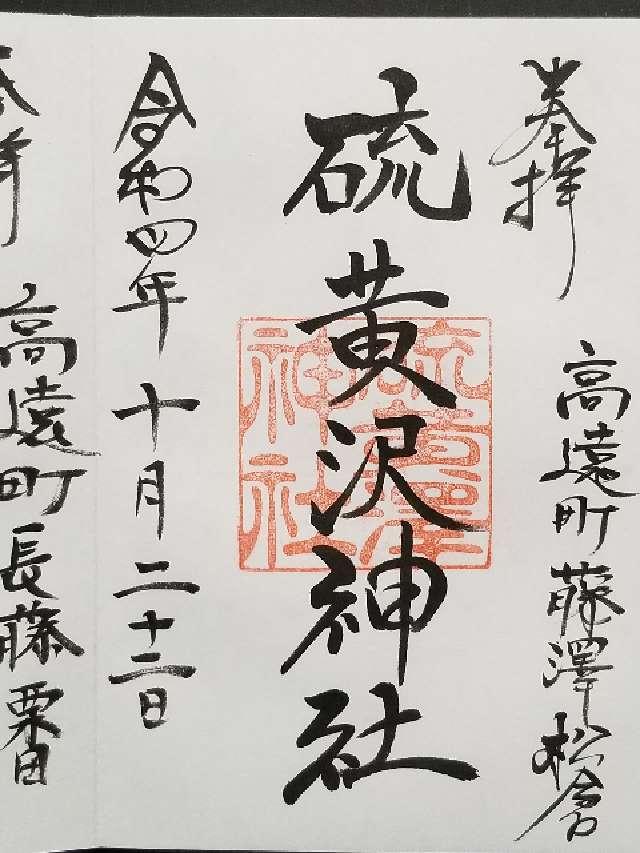 奉拝
高遠町藤澤松倉
硫黄沢神社
硫黄澤
神社
令和四年十月二十二日
奉拝
高遠町長藤栗田